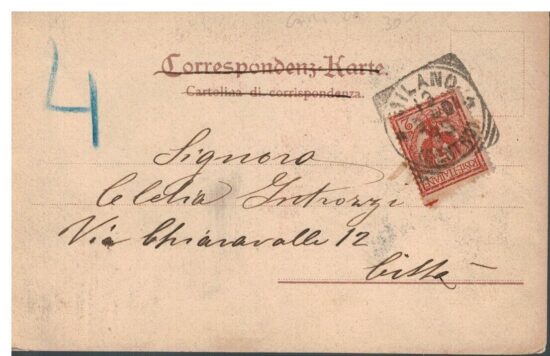 4
Correspondenz-Karte.
Cartolina di corrispondenza.
MILANO
Signora
Clelia Introzzi
Via Chiaravalle 12
Città